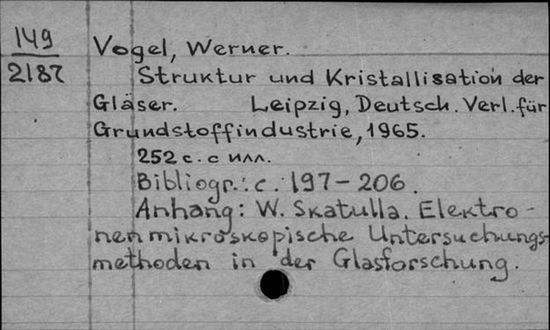 149
2187
Vogel, Werner.
Struktur und Kristallisation der
Gläser. Leipzig, Deutsch. Verl. für
Grundstoffindustrie, 1965.
252 с. с илл.
Bibliogr.: с. 197-206.
Anhang: W. Skatulla. Elektro-
nenmikroskopische Untersuchungs-
methoden in der Glasforschung.